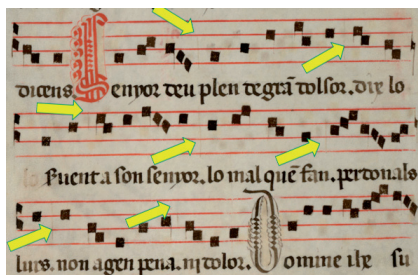 dicens Senyor deu plen de grã dolsor. diz lo
Fuent a son senyor. lo mal que fan. perdonals
luirs. non agen pena. ni dolor. Domine ihe su